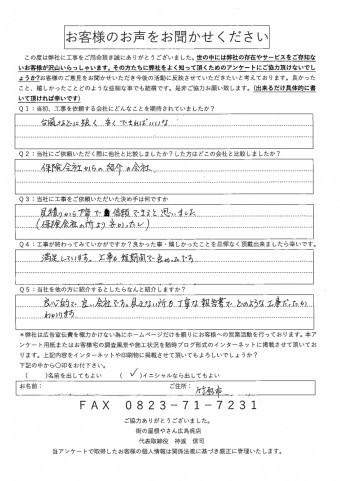 お客様のお声をお聞かせください
この度は弊社に工事をご用命頂き誠にありがとうございました。世の中には弊社の存在やサービスをご存知ない
お客様が沢山いらっしゃいます。その方たちに弊社をよく知って頂くためのアンケートにご協力頂けないでしょ
うか?お客様のご意見をお聞かせいただき今後の活動に反映させていただきたいと考えております。良かった
こと、嬉しかったことどのような些細な事でも結構です。是非ご協力お願い致します。(出来るだけ具体的に書
いて頂ければ幸いです)
Q1:当初、工事を依頼する会社にどんなことを期待されていましたか?
台風などに強く 安くできればいいな
Q2:当社にご依頼いただく際に他社と比較しましたか?した方はどこの会社と比較しましたか?
保険会社からの紹介の会社
Q3:当社に工事をご依頼いただいた決め手は何ですか
見積りから丁寧で 信頼できると思いました
(保険会社の所より 安かったし)
Q4:工事が終わってみていかがですか?良かった事・嬉しかったことを忌憚なく頂戴出来ましたら幸いです。
満足しています。工事も短期間で良かったです
Q5:当社を他の方に紹介するとしたらなんと紹介しますか?
良心的で 良い会社です。見えない所も 丁寧な報告書で どのような工事だったか
わかります
*弊社は広告宣伝費を極力かけない為にホームページだけを頼りにお客様への営業活動を行っております。本ア
ンケート用紙またはお客様宅の調査風景や施工状況を随時ブログ形式のインターネットに掲載させて頂いてお
ります。上記内容をインターネットや印刷物に掲載させて頂いてもよろしいでしょうか?
下記の中から〇印をお付け下さい。
( )名前を出してもよい (✓)イニシャルなら出してもよい
お名前: ご住所: 竹原市
FAX 0823-71-7231
ご協力ありがとうございました。
街の屋根やさん広島呉店
代表取締役 神垣 信司
当アンケートで取得したお客様の個人情報は関係法規に基づき厳正に管理いたします。